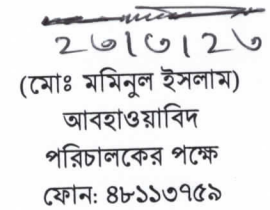 (মোঃ মমিনুল ইসলাম)
আবহাওয়াবিদ
পরিচালকের পক্ষে
ফোন: ৪৮১১৩৭৫৯